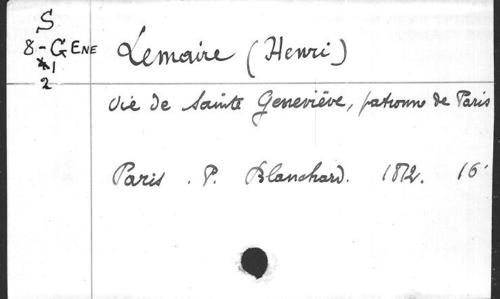 S
8-GENE
*1
2
Lemaire (Henri)
Vie de Sainte Geneviève, patronne de Paris
Paris . P. Blanchard. 16°